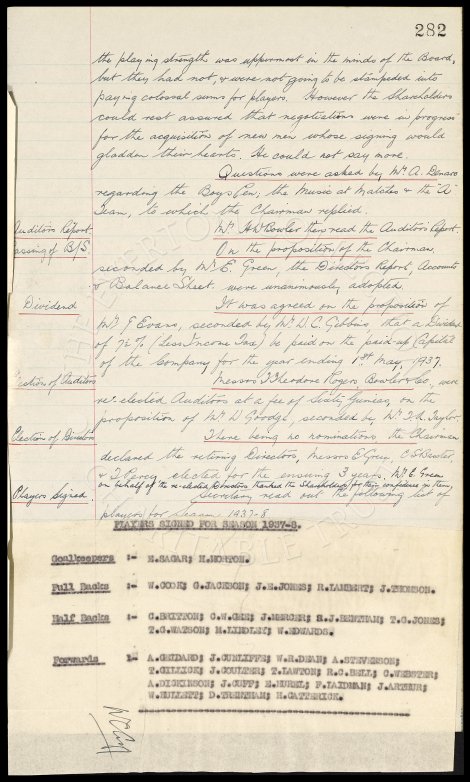 282
the playing strength was uppermost in the minds of the Board,
but they had not, & were not going to be stampeded into
paying colossal sums for players. However the Shareholders
could rest assured that negotiations were in progress
for the acquisition of new men whose signing would
gladden their hearts. He could not say more.
Questions were asked by Mr A.
regarding the Boys Pen, the Music at Matches & the "A"
Team, to which the Chairman replied.
Auditors Report
Mr. H.W. Bowler then read the Auditors Report.
Passing of B/S.
On the proposition of the Chairman,
seconded by Mr. E. Green, the Directors Report, Accounts
& Balance Sheet were unanimously adopted.
Dividend
It was agreed on the proposition of
Mr. Evans, seconded by Mr. W.C. Gibbins, that a Dividend
of 7½% (Less Income Tax) be paid on the paid-up Capital
of the Company for the year ending 1st May, 1937.
Election of Auditors
Messrs Theodore Rogers Bowler & Co. were
re-elected Auditors at a fee of Sixty Guineas, on the
proposition of Mr. seconded by Mr. Taylor.
Election of Directors
There being no nominations, the Chairman
declared the retiring Directors, Messrs E Green, C.S. Baxter,
& T. Percy elected for the ensuing 3 years. Mr E Green
on behalf of the re-elected Directors thanked the Shareholders for their confidence in them.
Players Signed.
Secretary read out the following list of
players for Season 1937-8.
PLAYERS SIGNED FOR SEASON 1937-8.
Goalkeepers :- E.SAGAR; H.MORTON.
Full Backs :- W.COOK; G.JACKSON; J.E.JONES; R.LAMBERT; J.THOMSON.
Half Backs :- C.BRITTON; C.W.GEE; J.MERCER; S.J.BENTHAM; T.G.JONES;
T.G.WATSON; M.LINDLEY; W.EDWARDS.
Forwards :- A.GELDARD; J.CUNLIFFE; W.R.DEAN; A.STEVENSON;
T.GILLICK; J.COULTER; T.LAWTON; R.C.BELL; C.WEBSTER;
A.DICKINSON; J.CUFF; E.HUREL; F.LAIDMAN; J.ARTHUR;
W.HULLETT; D.TRENTHAM; H.CATTERICK.